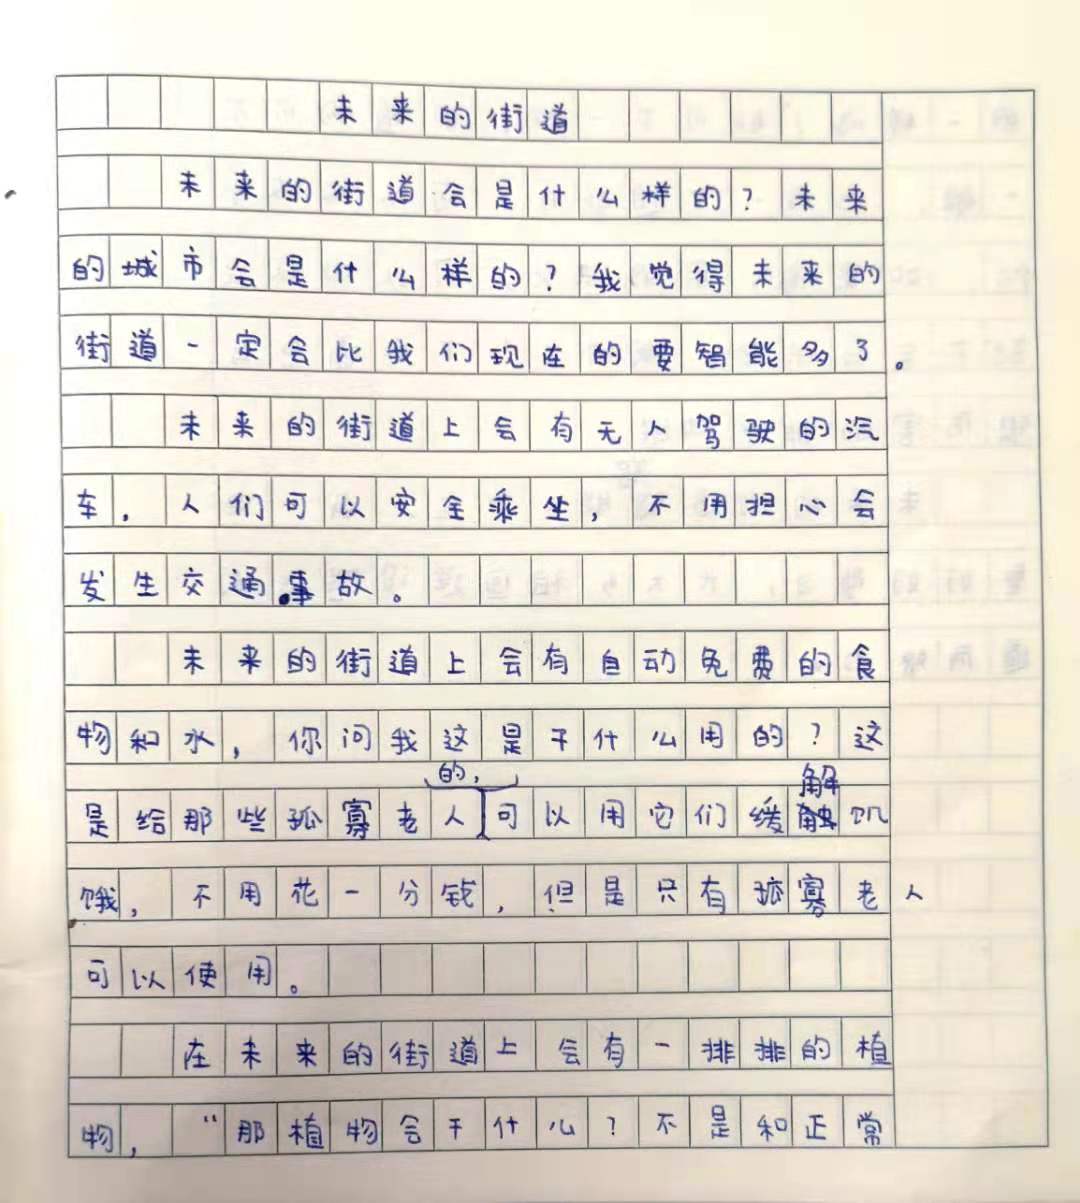 未来的街道
未来的街道会是什么样的?未来
的城市会是什么样的?我觉得未来的
街道一定会比我们现在的要智能多了。
未来的街道上会有无人驾驶的汽
车,人们可以安全乘坐,不用担心会
发生交通事故。
未来的街道上会有自动免费的食
物和水,你问我这是干什么用的?这
的, 解
是给那些孤寡老人可以用它们缓触饥
饿,不用花一分钱,但是只有孤寡老人
可以使用。
在未来的街道上会有一排排的植
物,“那植物会干什么?不是和正常